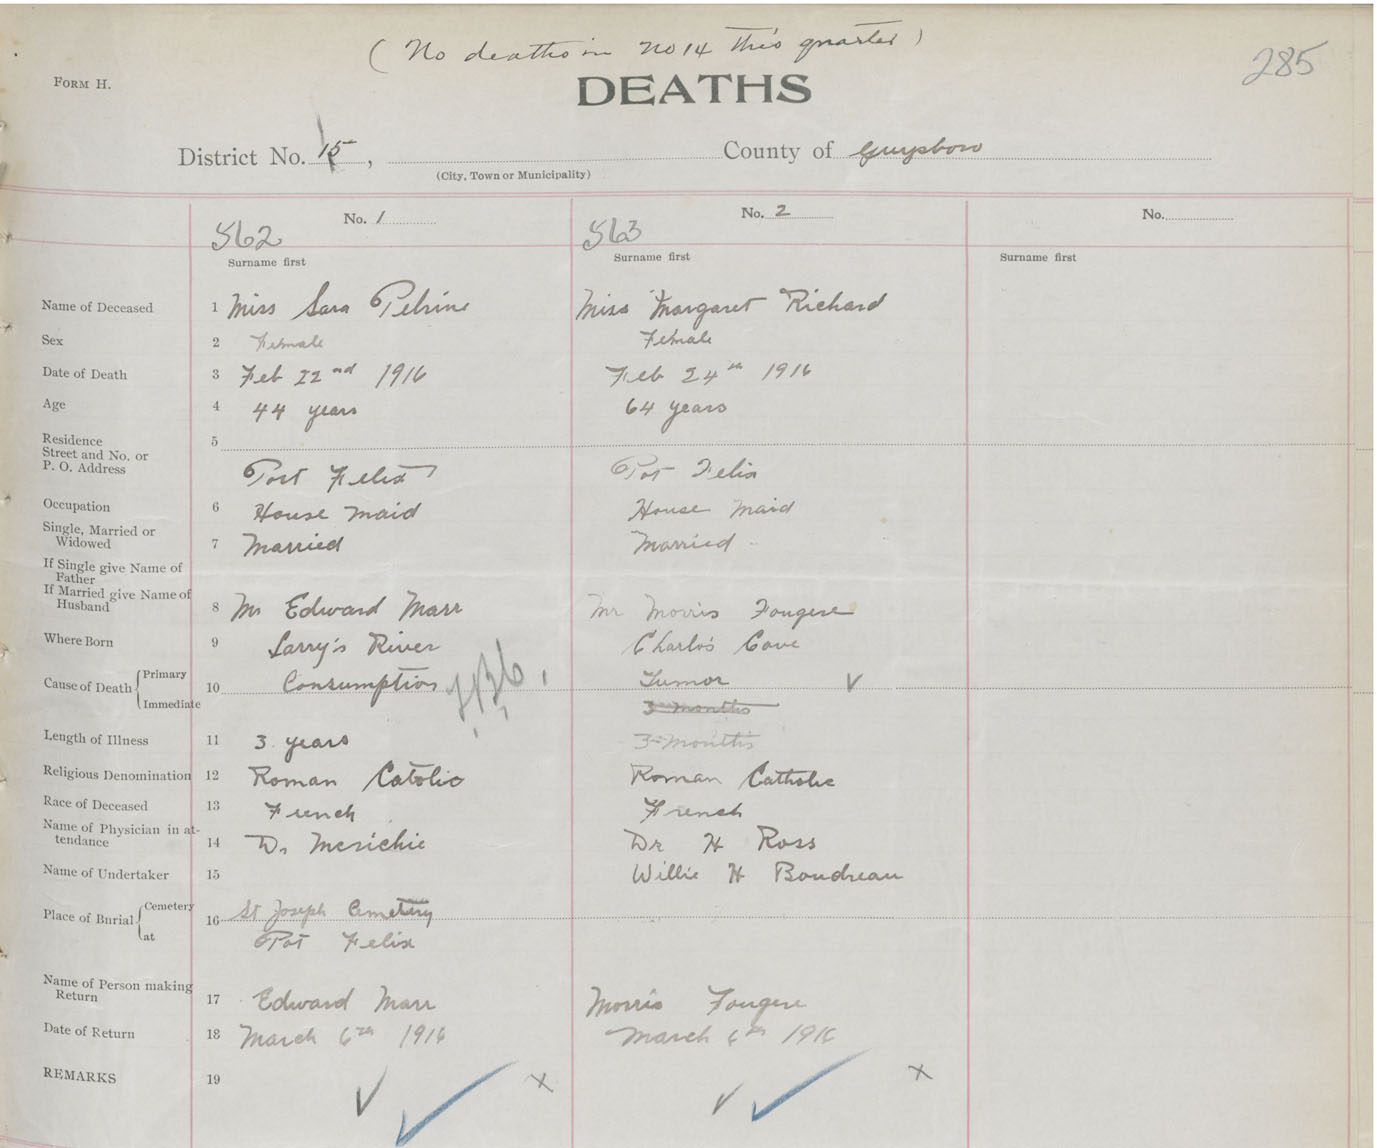 ( No deaths in No 14 this quarter )
285
FORM H.
DEATHS
District No. 15,
County of Guysboro
(City, Town or Municipality)
No. 1
No. 2
No.
562
563
Surname first
Surname first
Surname first
Name of Deceased 1 Miss Sara Pelrine Miss Margaret Richard
Sex 2 Female Female
Date of Death 3 Feb 22nd 1916 Feb 24th 1916
Age 4 44 years 64 years
Residence 5
Street and No. or
P. O. Address Port Felix Por Felix
Occupation 6 House Maid House Maid
Single, Married or
Widowed 7 Married Married
If Single give Name of
Father
If Married give Name of
Husband 8 Mr Edward Marr Mr Morris Fougere
Where Born 9 Larry's River Charlo's Cove
Cause of Death Primary 10 Consumption Tumor
Immediate 3 months
Length of Illness 11 3 years 3 months
Religious Denomination 12 Roman Catolic Roman Catholic
Race of Deceased 13 French French
Name of Physician in at-
tendance 14 Dr H Ross
Name of Undertaker 15 Willie H Boudreau
Place of Burial Cemetery 16 St Joseph Cemetery
at Por Felix
Name of Person making
Return 17 Edward Marr Morris Fougere
Date of Return 18 March 6th 1916 March 6th 1916
REMARKS 19